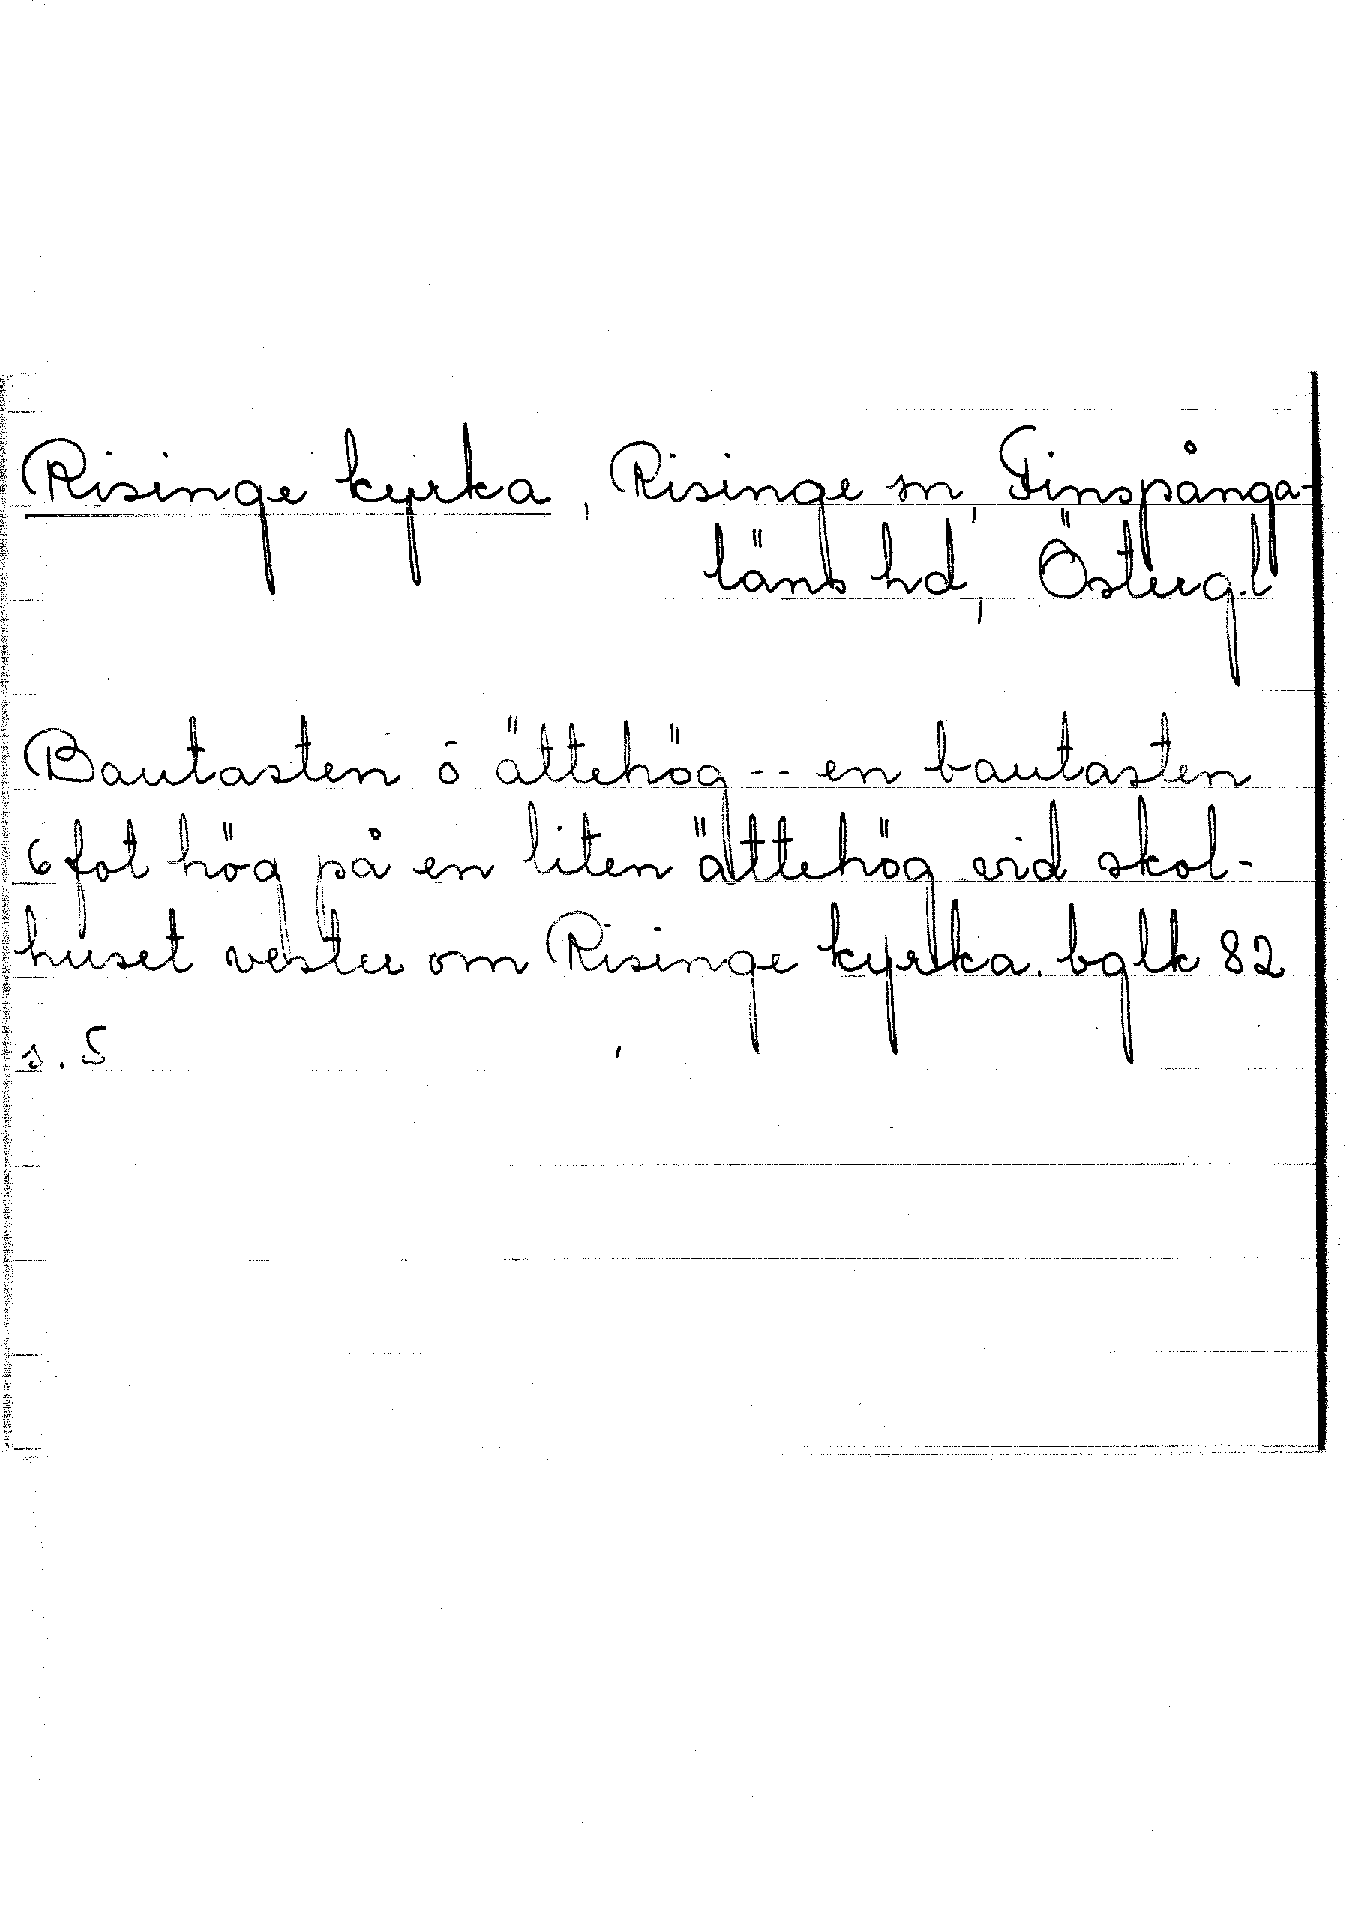 Risinge kyrka, Risinge sn, Finspånga-
läns hd, Östergl
Bautasten o ättehög -- en bautasten
6 fot hög på en liten ättehög vid skol-
huset vester om Risinge kyrka. bglk 82
s. 5